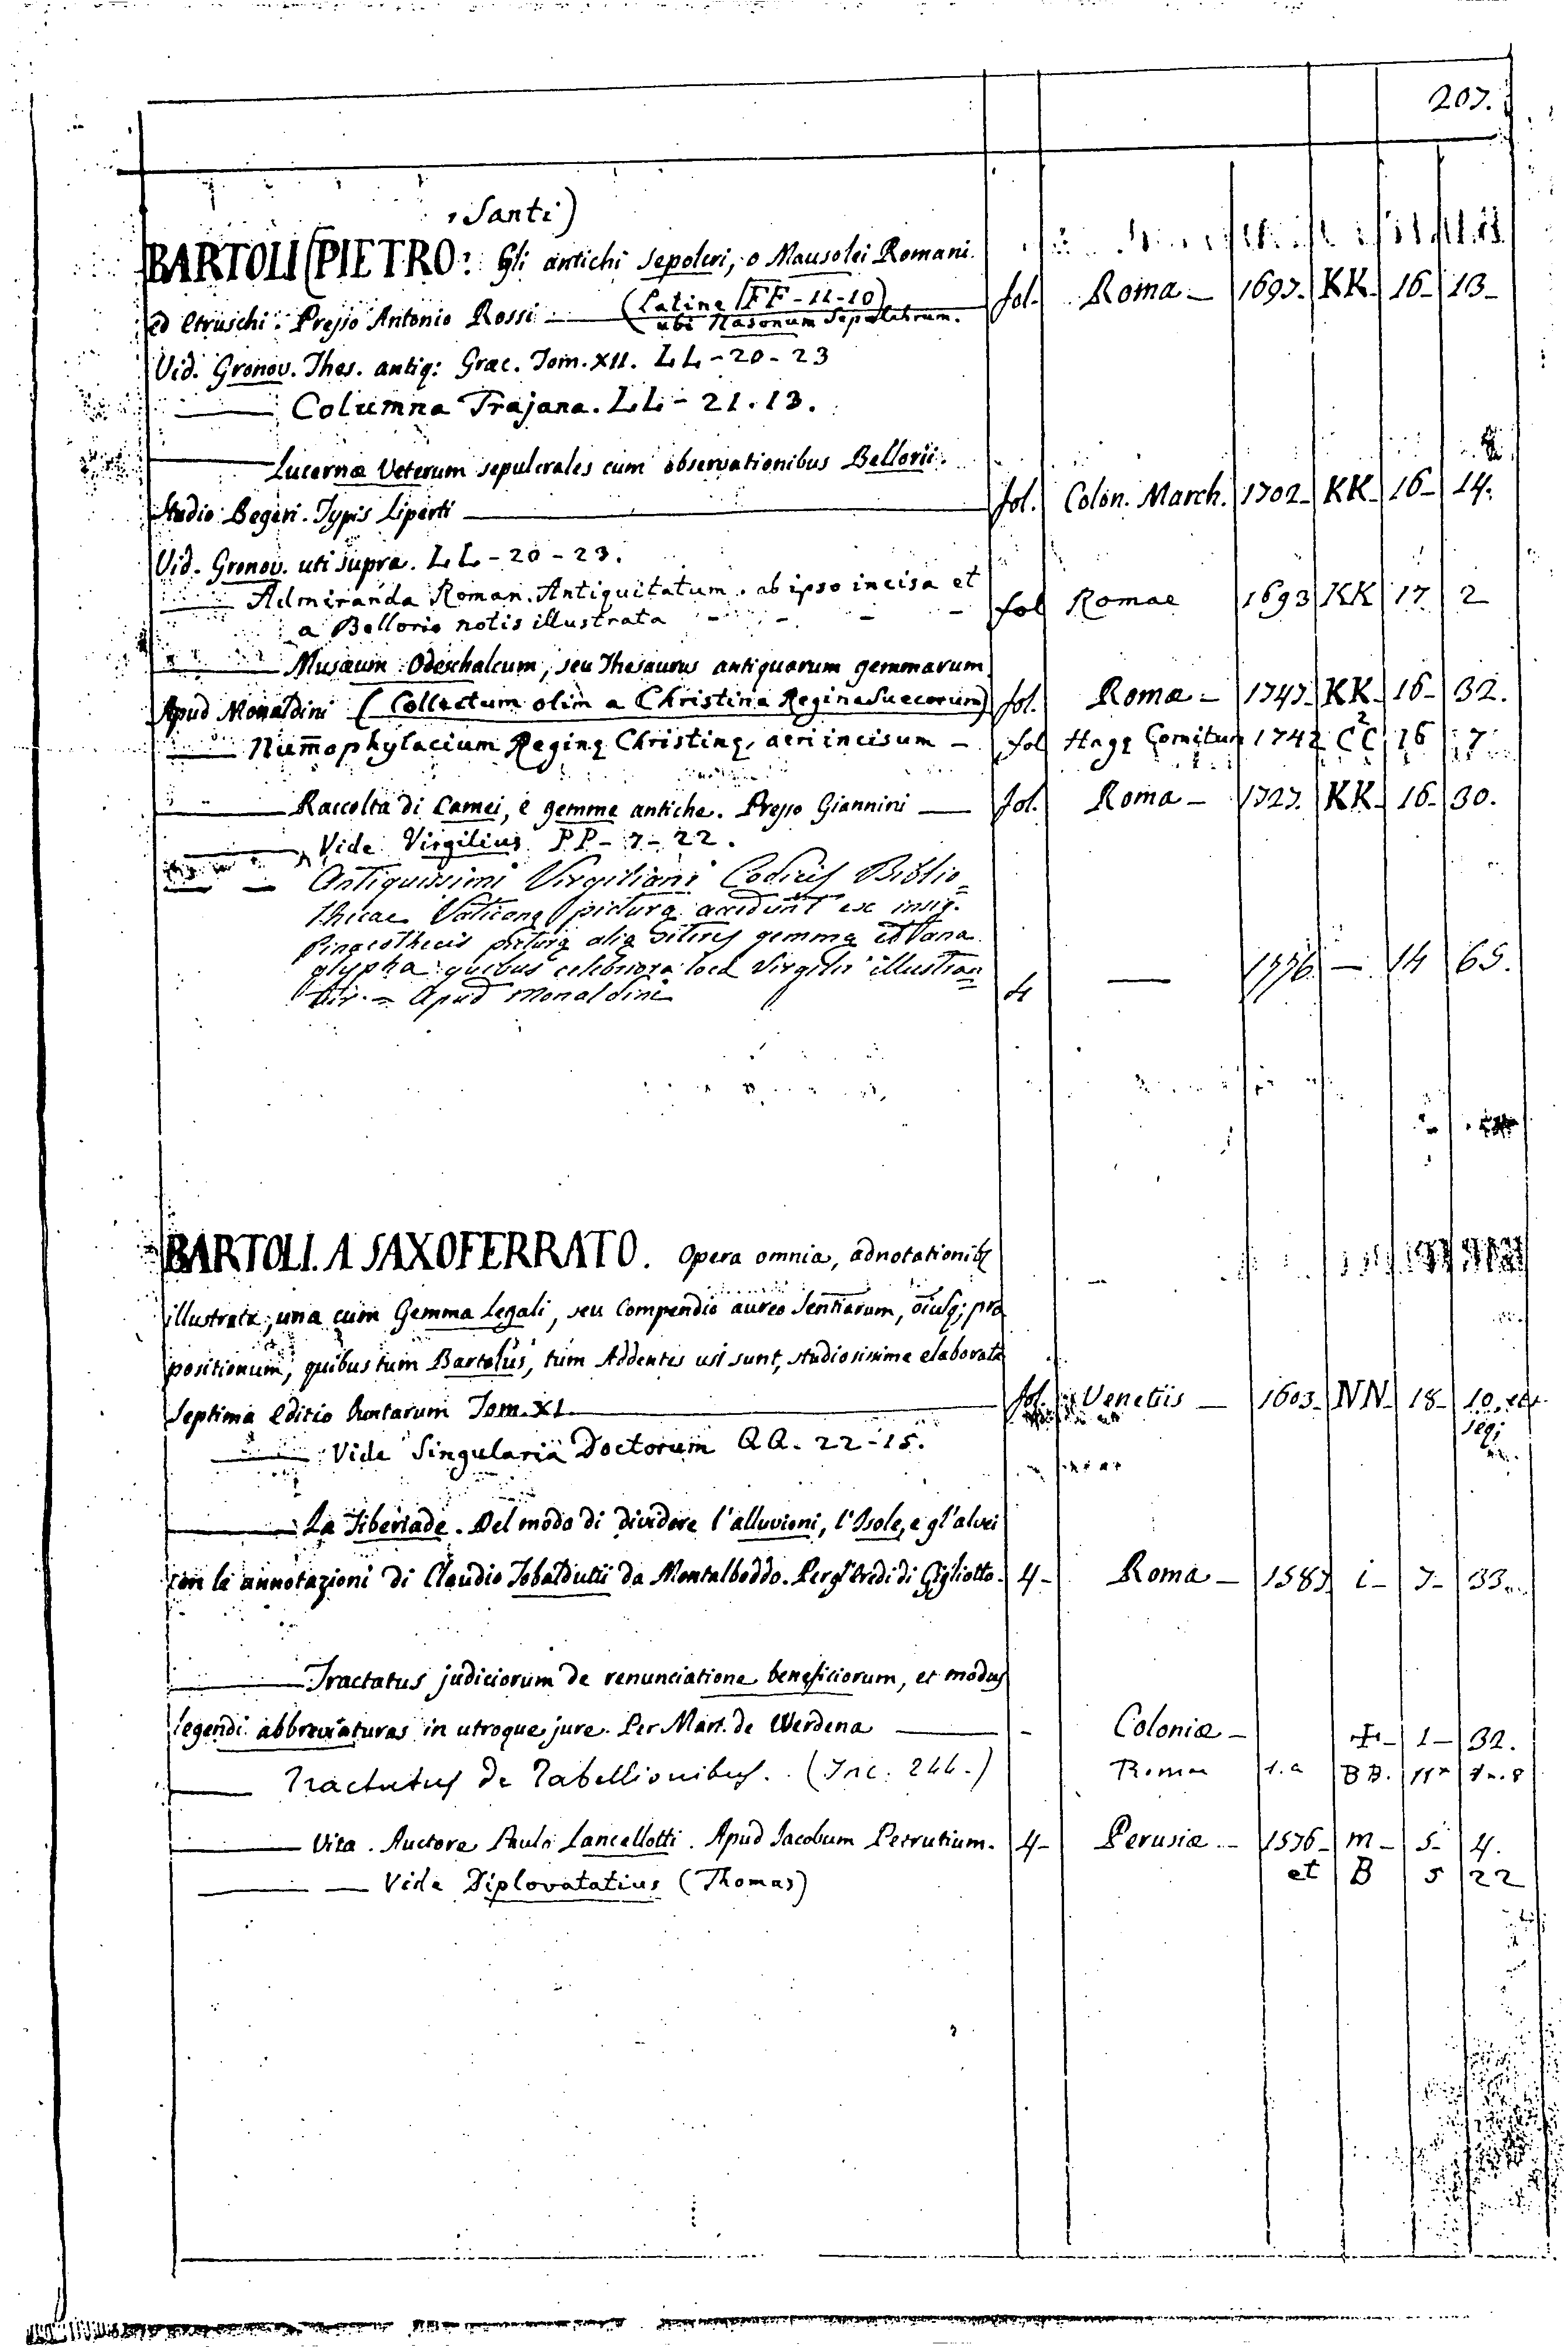 207.
, Santi)
BARTOLI (PIETRO: Gli antichi Sepolcri, o Mausolei Romani
ed Etruschi. Presso Antonio Rossi — (Latine FF-11-10) fol. Roma — 1697. KK- 16- 13-
ubi Nasonum Sepulchrum.
Vid. Gronov. Thes. antiq: Græc. Tom. XII. LL-20-23
— Columna Trajana. LL-21.13.
— Lucernæ Veterum sepulcrales cum observationibus Bellorii.
Studio Begeri. Typis Liperti — fol. Colon. March. 1702- KK- 16- 14.
Vid. Gronov. uti supra. LL-20-23.
— Admiranda Roman. Antiquitatum. ab ipso incisa et
a Bellorio notis illustrata - - - - fol Romae 1693 KK 17 2
— Musæum Odeschalcum, seu Thesaurus antiquarum gemmarum
Apud Monaldini (Collectum olim a Christina Regina Suecorum) fol. Romæ - 1747. KK- 16- 32.
— Num̄ophylacium Reginę Christinę, aeri incisum - fol Hagę Comitum 1742 CC 2 16 7
— Raccolta di Camei, e gemme antiche. Presso Giannini — fol. Roma - 1727. KK- 16- 30.
— Vide Virgilius PP-7-22.
— — Antiquissimi Virgiliani Codicis Biblio=
thecae Vaticanę picturę accedunt ex insig.
Pinacothecis picturę alię veteres gemmę et ana
glypha quibus celebriora loca Virgilii illustran=
tur. = Apud Monaldini 4 — 1776 — 14 65.
BARTOLI. A SAXOFERRATO. Opera omnia, adnotationibꝫ
illustrata; una cum Gemma legali, seu Compendio aureo Sentiarum, oiūsq; pro
positionum, quibus tum Bartolus, tum Addentes usi sunt, studiosissime elaborata
Septima Editio Juntarum Tom. XI. — fol. Venetiis — 1603- NN- 18- 10. et
seq;
— Vide Singularia Doctorum QQ-22-15.
— La Tiberiade. Del modo di dividere l'alluvioni, l'Isole, e gl'alvei
con le annotazioni di Claudio Tobaldutii da Montalboddo. Per gl'Eredi di Gigliotto. 4- Roma - 1587. i- 7- 33.
— Tractatus judiciorum de renunciatione beneficiorum, et modus
legendi abbreviaturas in utroque jure. Per Mart. de Werdena — - Coloniæ - 1- 32.
— Tractatus de Tabellionibus. (Inc. 244.) Romae BB.
— Vita. Auctore Paulo Lancellotti. Apud Jacobum Petrutium. 4- Perusiæ - 1576- m- 5- 4.
— — Vide Diplovatatius (Thomas) et B 5 22